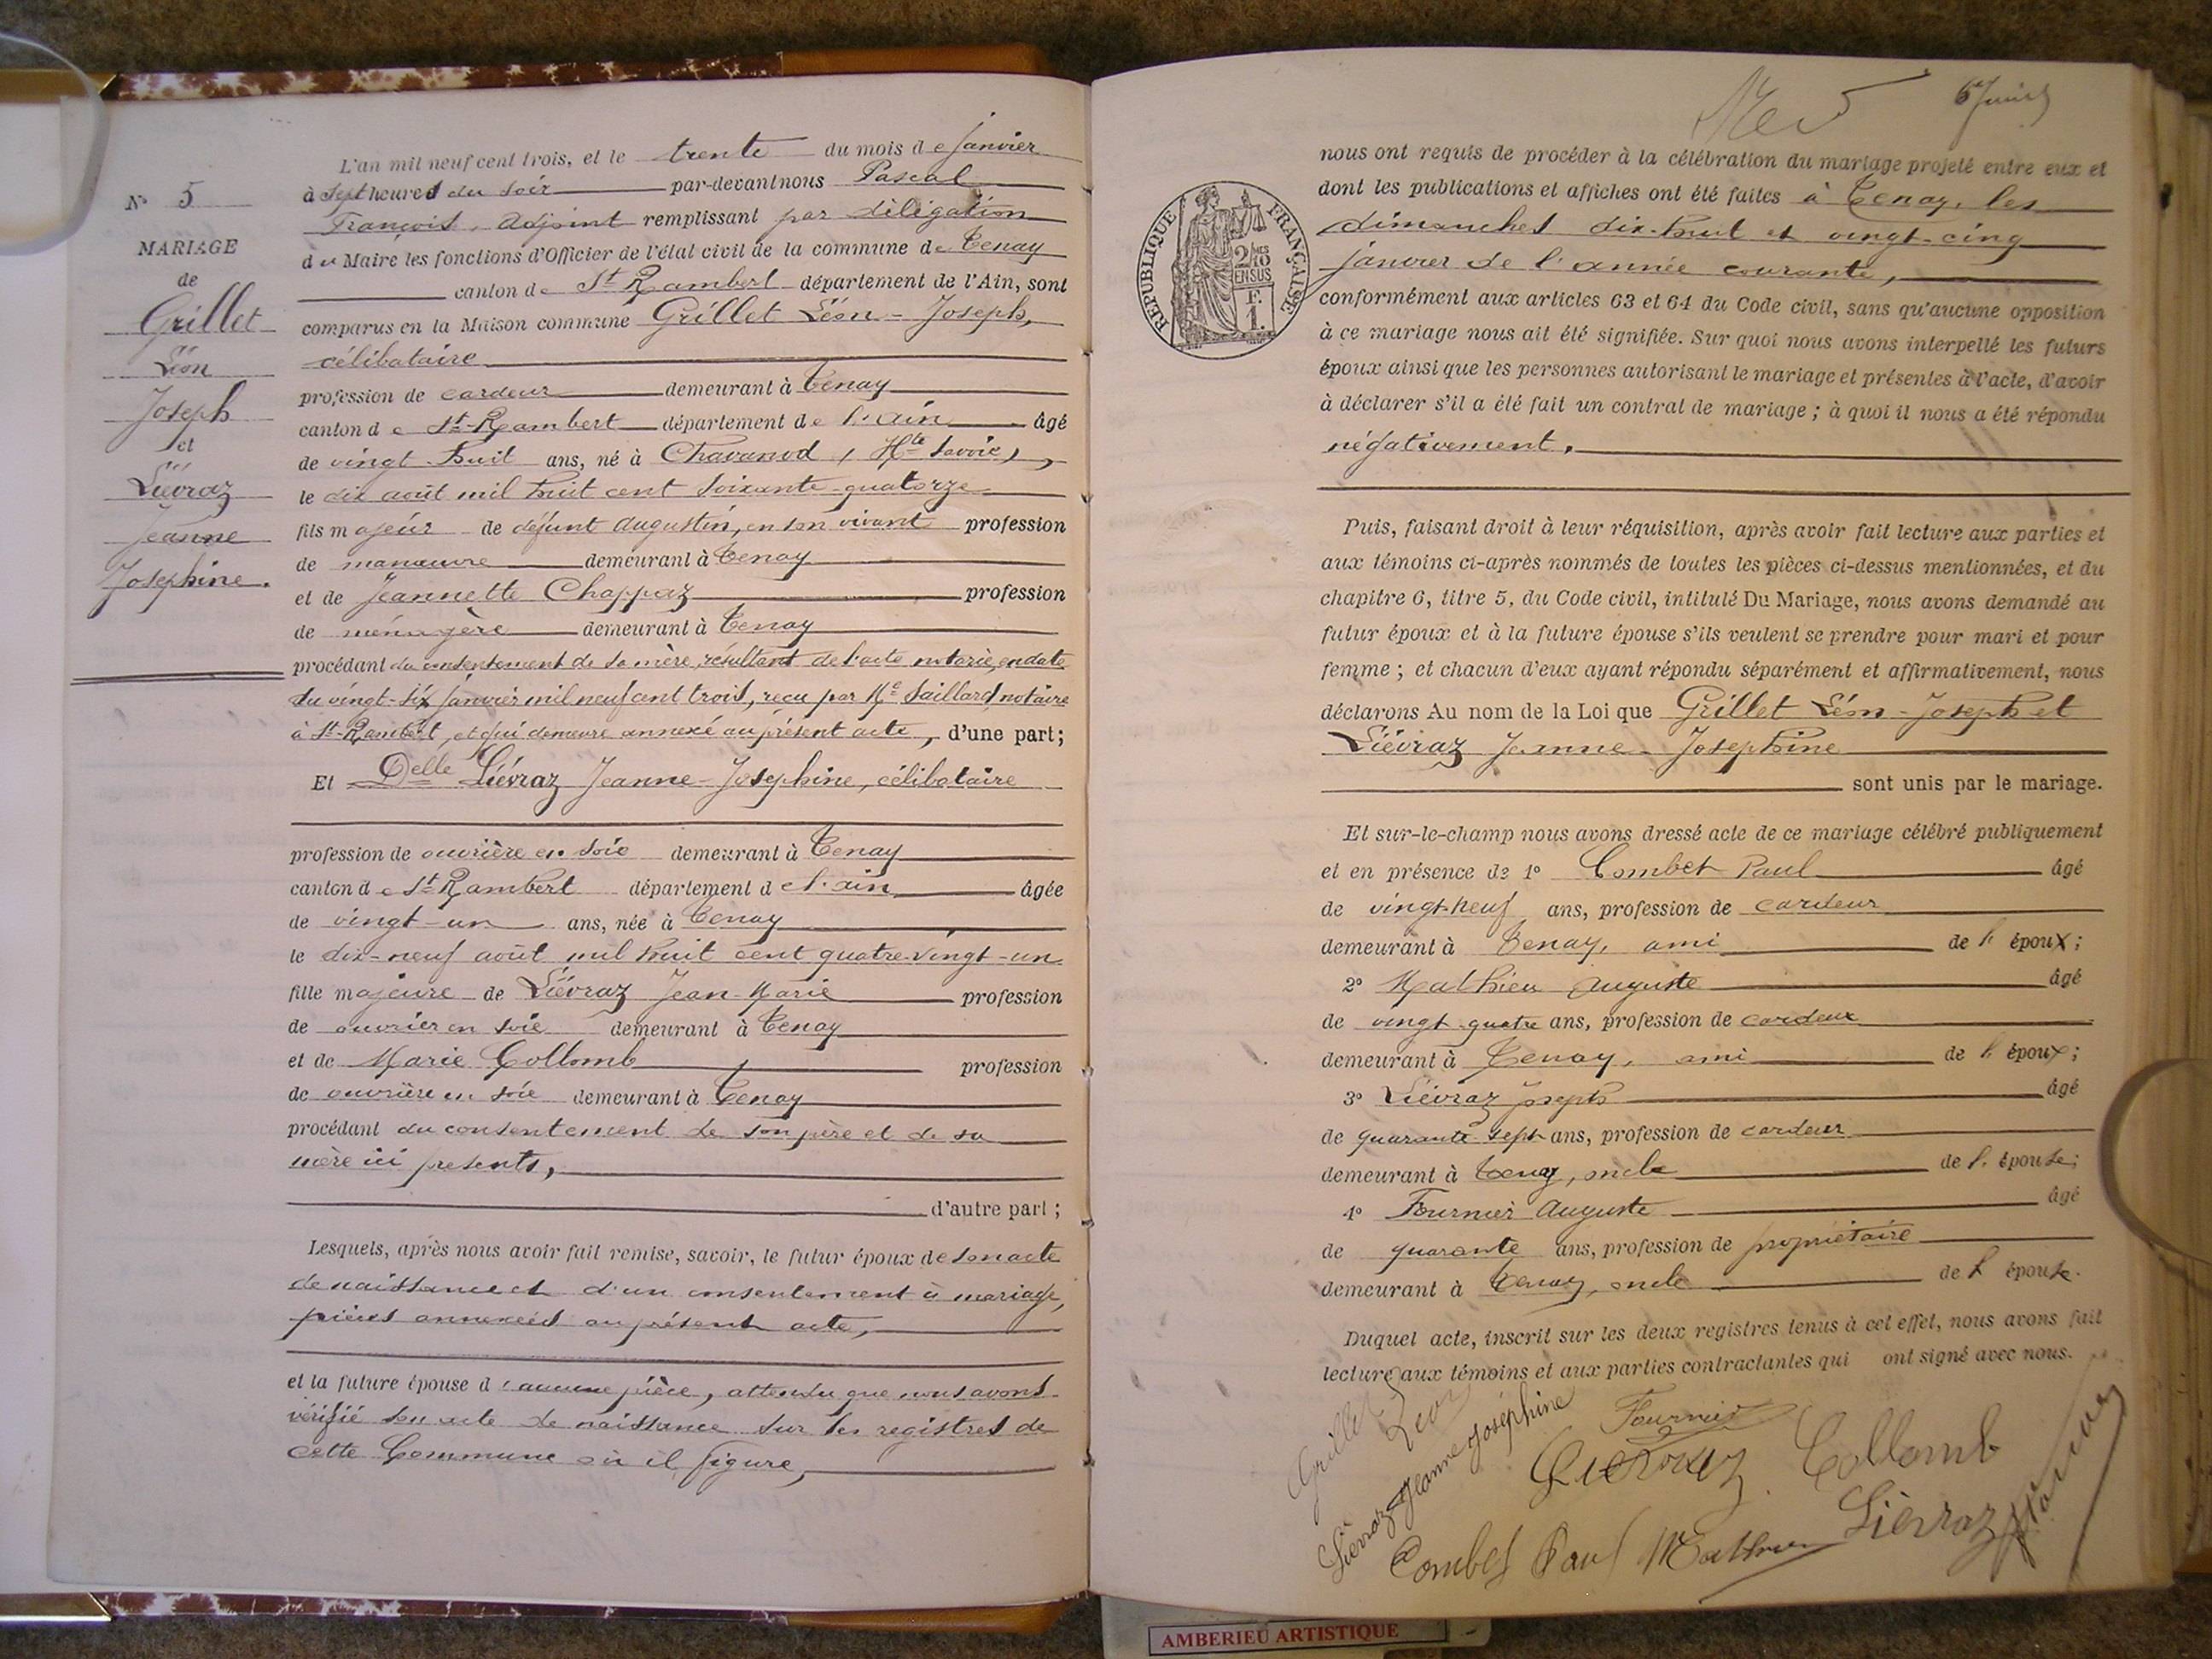 N° 5
MARIAGE
de
Grillet
Léon
Joseph
et
Liévraz
Jeanne
Josephine.
L'an mil neuf cent trois, et le trente du mois de janvier
à sept heures du soir par-devant nous Pascal
François, adjoint remplissant par déligation
du Maire les fonctions d'Officier de l'état civil de la commune de Tenay
canton de St Rambert département de l'Ain, sont
comparus en la Maison commune Grillet Léon-Joseph,
célibataire
profession de cardeur demeurant à Tenay
canton de St-Rambert département de l'ain âgé
de vingt huit ans, né à Chavanod, (Hte Savoie),
le dix août mil huit cent soixante-quatorze
fils majeur de défunt Augustin, en son vivant profession
de manœuvre demeurant à Tenay
et de Jeannette Chappaz profession
de ménagère demeurant à Tenay
procédant du consentement de sa mère, résultant de l'acte notarié, en date
du vingt-six janvier mil neuf cent trois, reçu par Me Saillard, notaire
à St-Rambert, et qui demeure annexé au présent acte, d'une part;
Et Delle Liévraz Jeanne-Josephine, célibataire
profession de ouvrière en soie demeurant à Tenay
canton de St-Rambert département de l'ain âgée
de vingt-un ans, née à Tenay
le dix-neuf août mil huit cent quatre-vingt-un
fille majeure de Liévraz Jean-Marie profession
de ouvrier en soie demeurant à Tenay
et de Marie Collomb, profession
de ouvrière en soie demeurant à Tenay
procédant du consentement de son père et de sa
mère ici presents,
d'autre part;
Lesquels, après nous avoir fait remise, savoir, le futur époux de son acte
de naissance et d'un consentement à mariage,
pièces annexées au présent acte,
et la future épouse d'aucune pièce, attendu que nous avons
vérifié son acte de naissance sur les registres de
cette Commune où il figure,
5
nous ont requis de procéder à la célébration du mariage projeté entre eux et
dont les publications et affiches ont été faites à Tenay, les
dimanches dix-huit et vingt-cinq
janvier de l'année courante,
RÉPUBLIQUE FRANÇAISE
2/10
EN SUS
F.
1.
conformément aux articles 63 et 64 du Code civil, sans qu'aucune opposition
à ce mariage nous ait été signifiée. Sur quoi nous avons interpellé les futurs
époux ainsi que les personnes autorisant le mariage et présentes à l'acte, d'avoir
à déclarer s'il a été fait un contrat de mariage; à quoi il nous a été répondu
négativement.
Puis, faisant droit à leur réquisition, après avoir fait lecture aux parties et
aux témoins ci-après nommés de toutes les pièces ci-dessus mentionnées, et du
chapitre 6, titre 5, du Code civil, intitulé Du Mariage, nous avons demandé au
futur époux et à la future épouse s'ils veulent se prendre pour mari et pour
femme; et chacun d'eux ayant répondu séparément et affirmativement, nous
déclarons Au nom de la Loi que Grillet Léon-Joseph et
Liévraz Jeanne-Josephine
sont unis par le mariage.
Et sur-le-champ nous avons dressé acte de ce mariage célébré publiquement
et en présence de 1° Combet Paul âgé
de vingt-neuf ans, profession de cardeur
demeurant à Tenay, ami de l'époux;
2° Mathieu Auguste âgé
de vingt-quatre ans, profession de cardeur
demeurant à Tenay, ami de l'époux;
3° Liévraz Joseph âgé
de quarante-sept ans, profession de cardeur
demeurant à Tenay, oncle de l'épouse;
4° Fournier Auguste âgé
de quarante ans, profession de propriétaire
demeurant à Tenay, oncle de l'épouse.
Duquel acte, inscrit sur les deux registres tenus à cet effet, nous avons fait
lecture aux témoins et aux parties contractantes qui ont signé avec nous.
Grillet Léon
Liévraz Jeanne Joséphine
Fournier
Lievraz Collomb
Combet Paul Mathieu Liévraz
AMBERIEU ARTISTIQUE